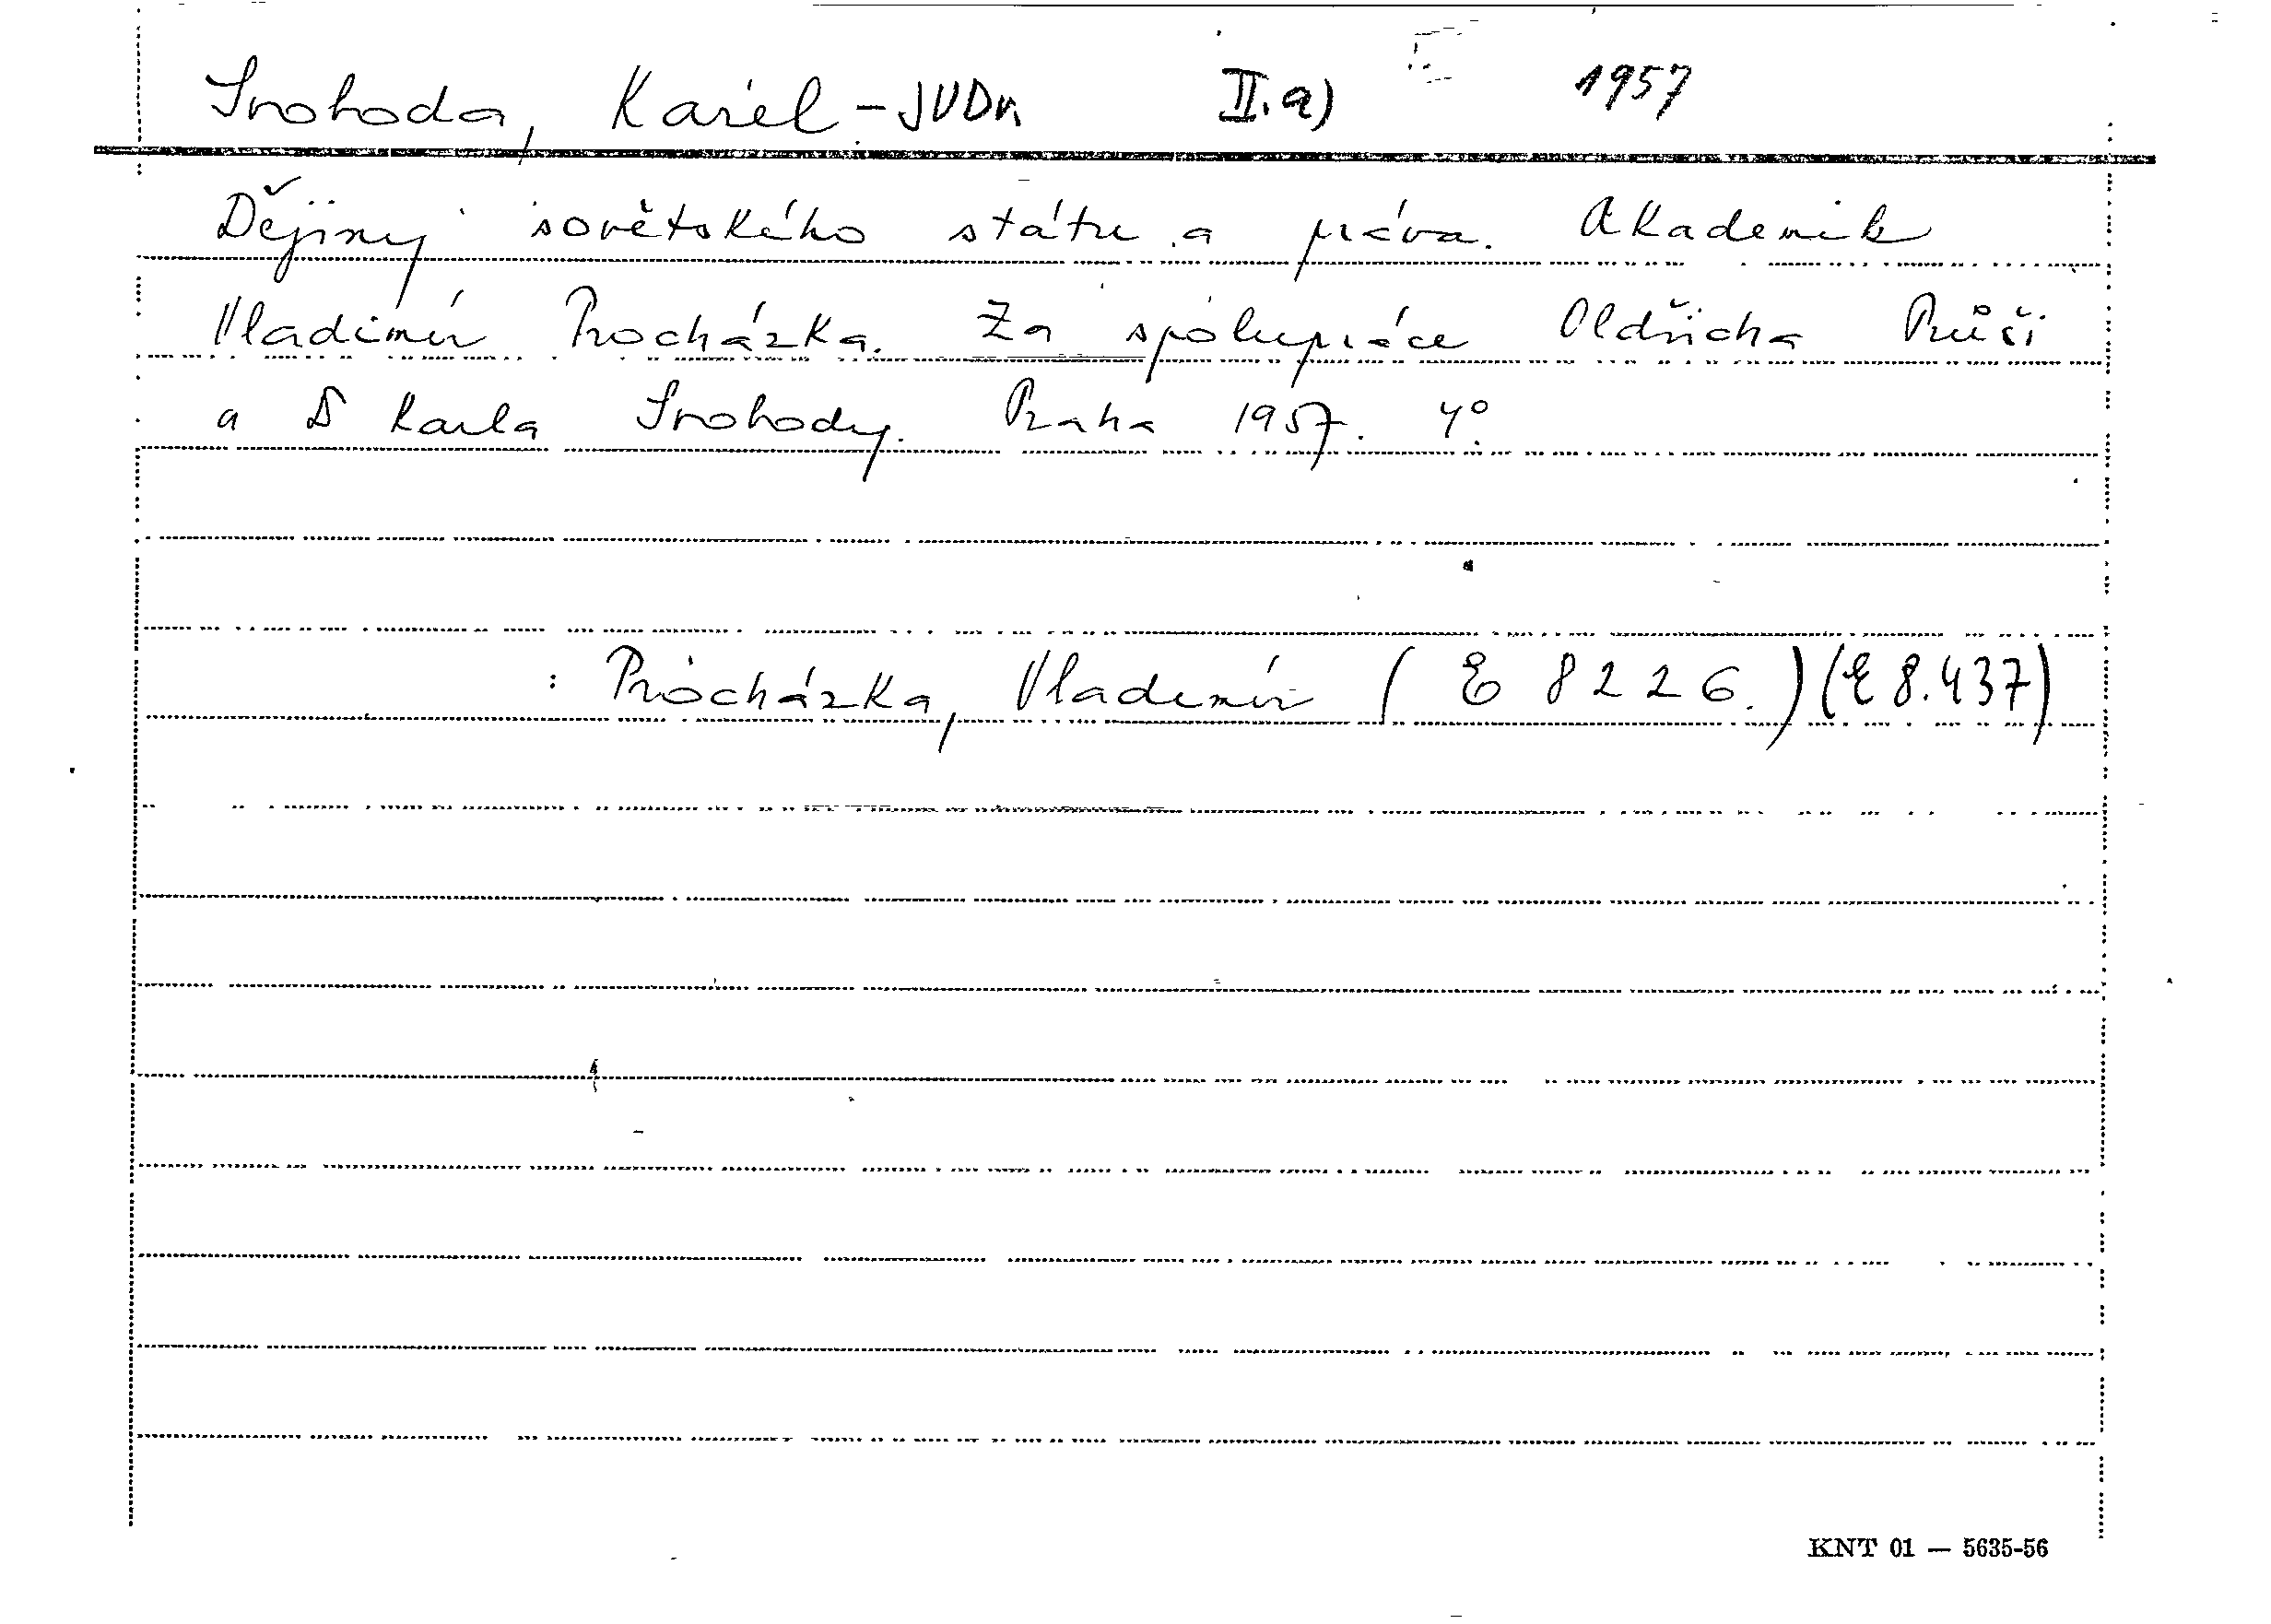 Svoboda, Karel - JUDr. II. a) 1957
Dějiny sovětského státu a práva. Akademik
Vladimír Procházka. Za spolupráce Oldřicha Průši
a Dr Karla Svobody. Praha 1957. 4°.
: Procházka, Vladimír ( E 8226.) (E 8.437)
KNT 01 — 5635-56